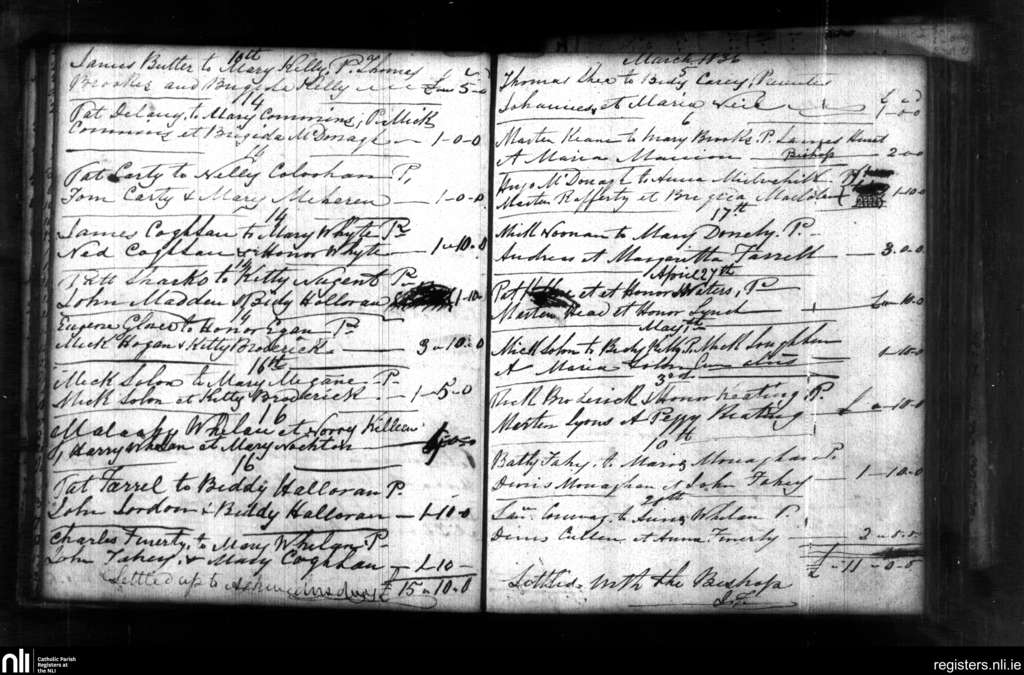 10th
James Butler to Mary Kelly. P. Thomas
Brooker and Brigida Kelly 5-0
14
Pat Delany, to Mary Commins, P. Mick
Commins et Brigida McDonagh 1-0-0
16
Pat Carty to Nelly Coloohan P.
Tom Carty & Mary Meharen 1-0-0
14
James Coghlan to Mary Whyte Ps
Ned Coghlan & Honor Whyte 1-10-0
Pat Sharko to Kitty Nugent P.
John Madden & Bidy Halloran 1-10-
14
Eugene Glover to Honor Egan Ps
Mick Hogan & Kitty Broderick 3-10-0
16th
Mick Solon to Mary Megane P.
Mick Solon et Kitty Broderick 1-5-0
16
Malachy Whelan et Norry Killeen
Harry Whelan et Mary Naghten
16
Pat Farrel to Biddy Halloran P.
John Lordon & Biddy Halloran 1-10-0
Charles Finerty, to Mary Whelan P.
John Fahey, & Mary Coghlan 1-10-
Settled up to £15-10-0
March 1836
Thomas Shea to Bidy Carey,
Johannes, et Maria 1-0-0
6
Marten Keane to Mary Brooks. P. James Hurst
A Maria Mannion Bishop 2-0-0
Hugo McDonagh to Anna
Marten Rafferty et Brigida 1-10-0
17th
Mick Noonan to Mary P.
Andreas et Margaritta Farrell 3-0-0
April 27th
Pat et Honor Waters, P
Merten Head et Honor Lynch 10-0
May
Mick Solon to Bidy Kelly P. Mick Loughlan
A Maria Solon 10-0
3rd
Mick Broderick & Honor Keating P.
Merten Lyons et Peggy Keating 10-0
10th
Batty Fahy, to Maria Monaghan P.
Denis Monaghan et John Fahey 1-10-0
20th
Lau. to Anna Whelan P.
Denis Cullen et Anna Finerty 2-0-0
£-11-0-0
Settled with the Bishop
nli
Catholic Parish
Registers at
the NLI
registers.nli.ie